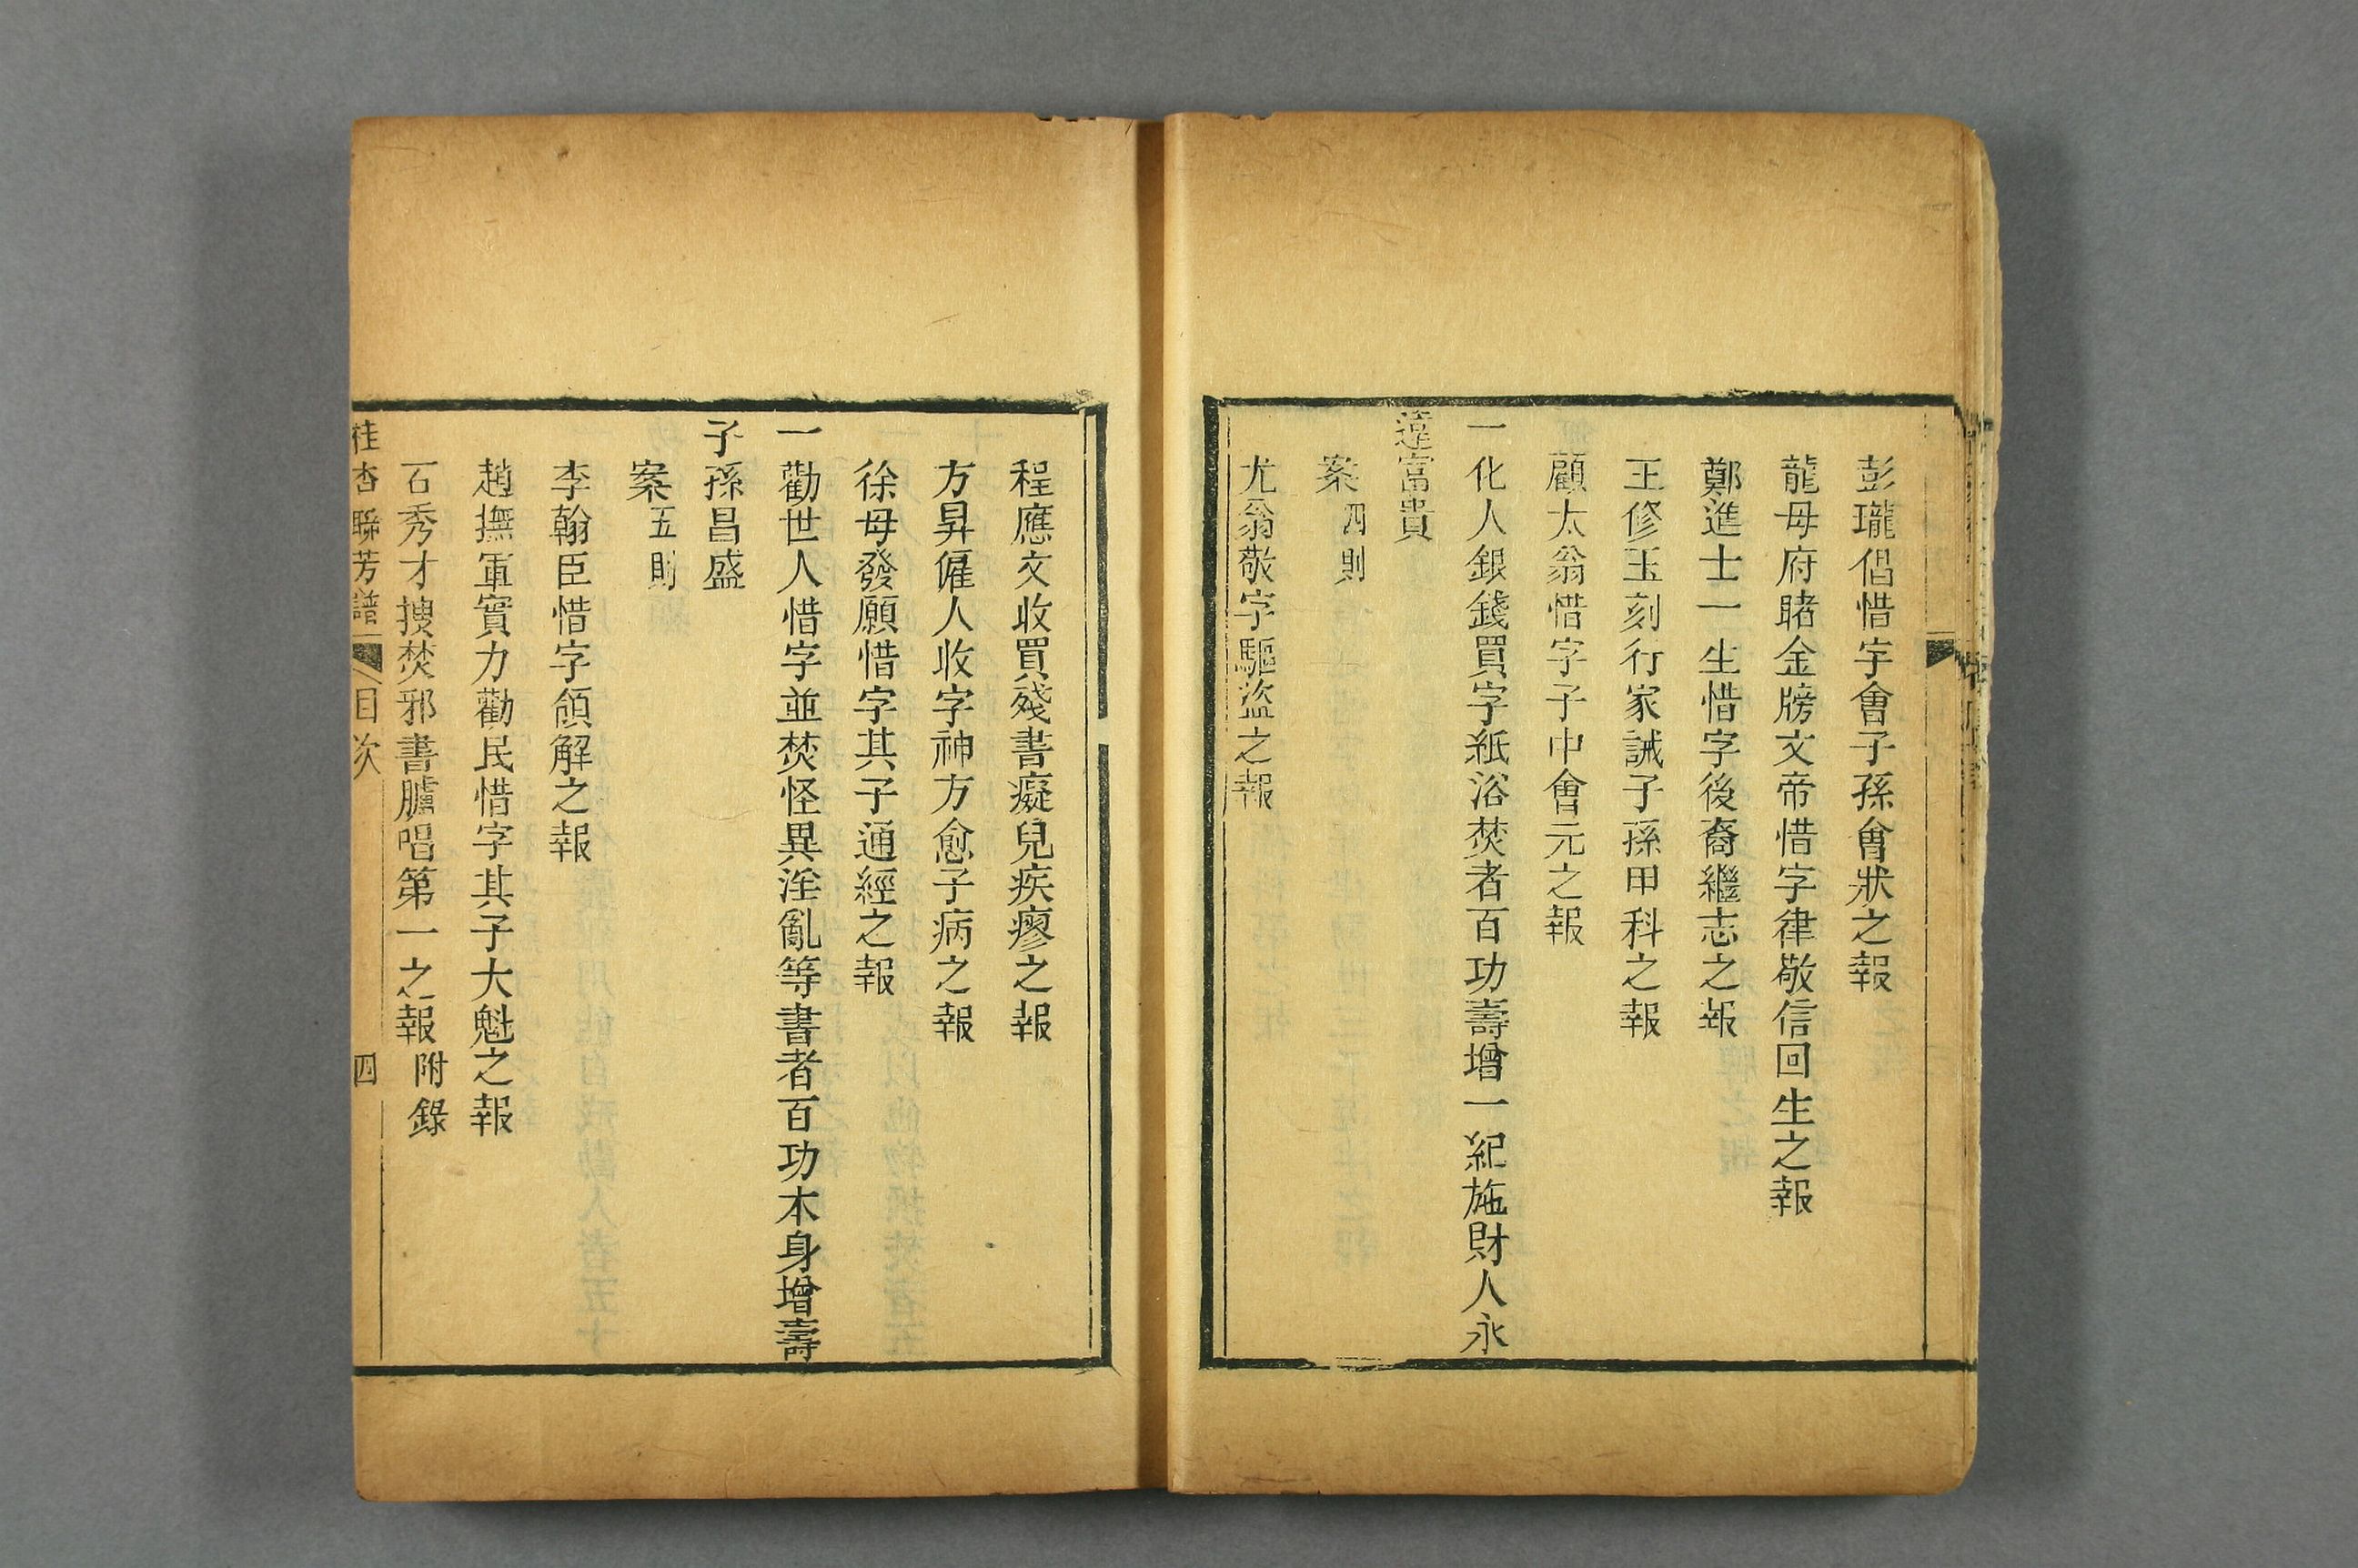 彭瓏倡惜字會子孫會狀之報
龍母府睹金牓文帝惜字律敬信回生之報
鄭進士一生惜字後裔繼志之報
王修玉刻行家誡子孫甲科之報
顧太翁惜字子中會元之報
一化人銀錢買字紙浴焚者百功壽增一紀施財人永
遠富貴
案四則
尤翁敬字驅盜之報
程應文收買殘書癡兒疾瘳之報
方昇僱人收字神方愈子病之報
徐母發願惜字其子通經之報
一勸世人惜字並焚怪異淫亂等書者百功本身增壽
子孫昌盛
案五則
李翰臣惜字領解之報
趙撫軍實力勸民惜字其子大魁之報
石秀才搜焚邪書臚唱第一之報附錄
桂杏聯芳譜 目次 四